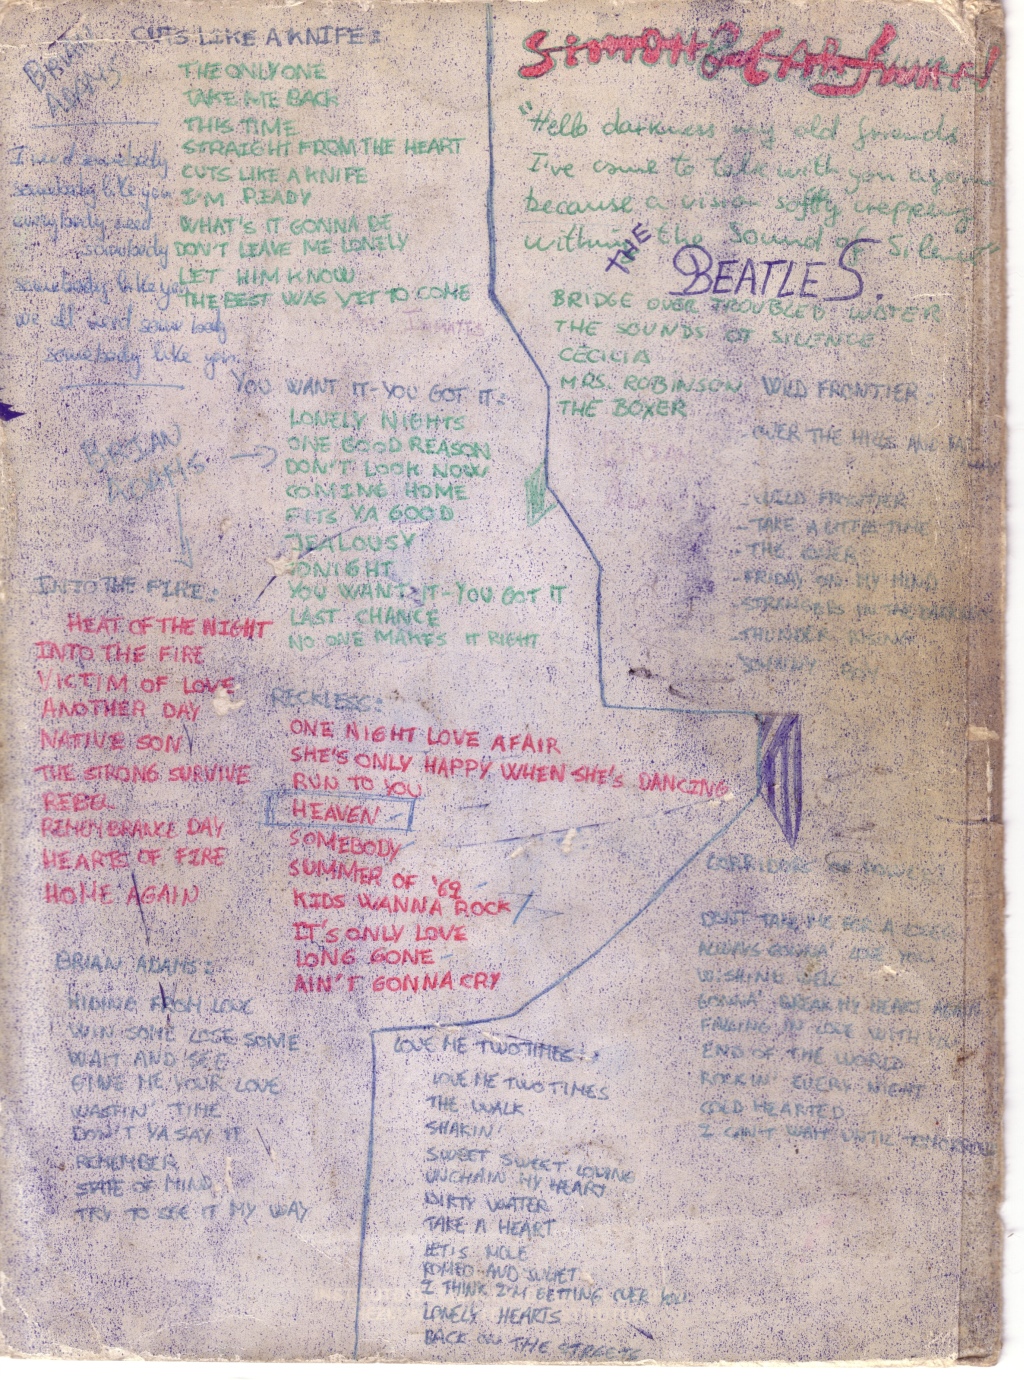 BRIAN
ADAMS
CUTS LIKE A KNIFE:
THE ONLY ONE
TAKE ME BACK
THIS TIME
STRAIGHT FROM THE HEART
CUTS LIKE A KNIFE
I'M READY
WHAT'S IT GONNA BE
DON'T LEAVE ME LONELY
LET HIM KNOW
THE BEST WAS YET TO COME
I need somebody
somebody like you
everybody need
somebody
somebody like you
we all need somebody
somebody like you
YOU WANT IT-YOU GOT IT:
LONELY NIGHTS
ONE GOOD REASON
DON'T LOOK NOW
COMING HOME
FITS YA GOOD
JEALOUSY
TONIGHT
YOU WANT IT-YOU GOT IT
LAST CHANCE
NO ONE MAKES IT RIGHT
BRIAN
ADAMS
INTO THE FIRE:
HEAT OF THE NIGHT
INTO THE FIRE
VICTIM OF LOVE
ANOTHER DAY
NATIVE SON
THE STRONG SURVIVE
REBEL
REMEMBRANCE DAY
HEARTS OF FIRE
HOME AGAIN
RECKLESS:
ONE NIGHT LOVE AFAIR
SHE'S ONLY HAPPY WHEN SHE'S DANCING
RUN TO YOU
HEAVEN
SOMEBODY
SUMMER OF '69
KIDS WANNA ROCK
IT'S ONLY LOVE
LONG GONE
AIN'T GONNA CRY
BRIAN ADAMS:
HIDING FROM LOVE
WIN SOME LOSE SOME
WAIT AND SEE
GIVE ME YOUR LOVE
WASTIN' TIME
DON'T YA SAY IT
REMEMBER
STATE OF MIND
TRY TO SEE IT MY WAY
SIMON & GARFUNKEL
"Hello darkness my old friends
I've come to talk with you again
because a vision softly creeping
within the Sound of Silence"
THE
BEATLES.
BRIDGE OVER TROUBLED WATER
THE SOUNDS OF SILENCE
CECILIA
MRS. ROBINSON
THE BOXER
WILD FRONTIER:
- OVER THE HILLS AND
- WILD FRONTIER
- TAKE A LITTLE TIME
- THE LONER
- FRIDAY ON MY MIND
- STRANGERS IN THE DARKNESS
- THUNDER RISING
JOHNNY BOY
CORRIDORS OF POWER
DON'T TAKE ME FOR A LOSER
ALWAYS GONNA LOVE YOU
WISHING WELL
GONNA BREAK MY HEART AGAIN
FALLING IN LOVE WITH YOU
END OF THE WORLD
ROCKIN' EVERY NIGHT
COLD HEARTED
I CAN'T WAIT UNTIL TOMORROW
LOVE ME TWO TIMES:
LOVE ME TWO TIMES
THE WALK
SHAKIN'
SWEET SWEET LOVING
UNCHAIN MY HEART
DIRTY WATER
TAKE A HEART
ROMEO AND JULIET
I THINK I'M GETTING OVER YOU
LONELY HEARTS
BACK ON THE STREETS